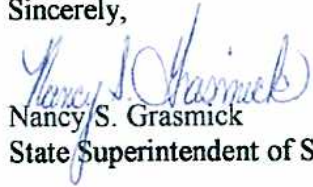 Sincerely,
Nancy S. Grasmick
Nancy S. Grasmick
State Superintendent of S